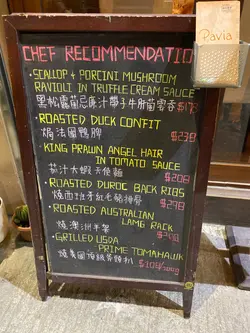 Pavia
CHEF RECOMMENDATION
• SCALLOP & PORCINI MUSHROOM
RAVIOLI IN TRUFFLE CREAM SAUCE
$178
• ROASTED DUCK CONFIT
焗法國鴨髀 $238
• KING PRAWN ANGEL HAIR
IN TOMATO SAUCE
茄汁大蝦天使麵 $208
• ROASTED DUROC BACK RIBS
燒西班牙紅毛豬排骨 $298
• ROASTED AUSTRALIAN
LAMB RACK
燒澳洲羊架
• GRILLED USDA
PRIME TOMAHAWK
燒美國頂級斧頭扒